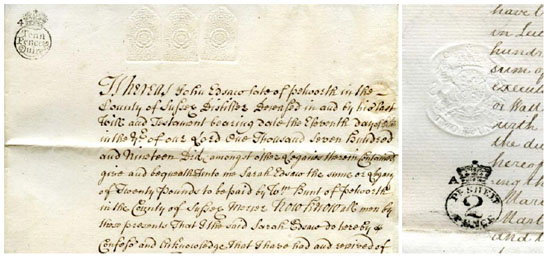 Tenn
Pence p
Quire
Whereas John Edsaw late of Petworth in the
County of Sussex Distiller Deceased in and by his last
Will and Testament bearing date the Eleventh day of
in the yr. of our Lord One Thousand Seven hundred
and Nineteen Did amongst other Legacies therein Contained
give and bequeath unto me Sarah Edsaw the sume or legacy
of Twenty Pounds to be paid by Wm. Hunt of Petworth
in the County of Sussex Mercer Now know all men by
these presents That I the said Sarah Edsaw do hereby
Confess and Acknowledge that I have had and received of
have
in
hund
sum of
execut
or
with
the du
hereof
ing tha
Mar
Mart
and t
A
PER SHEET
2
PENCE